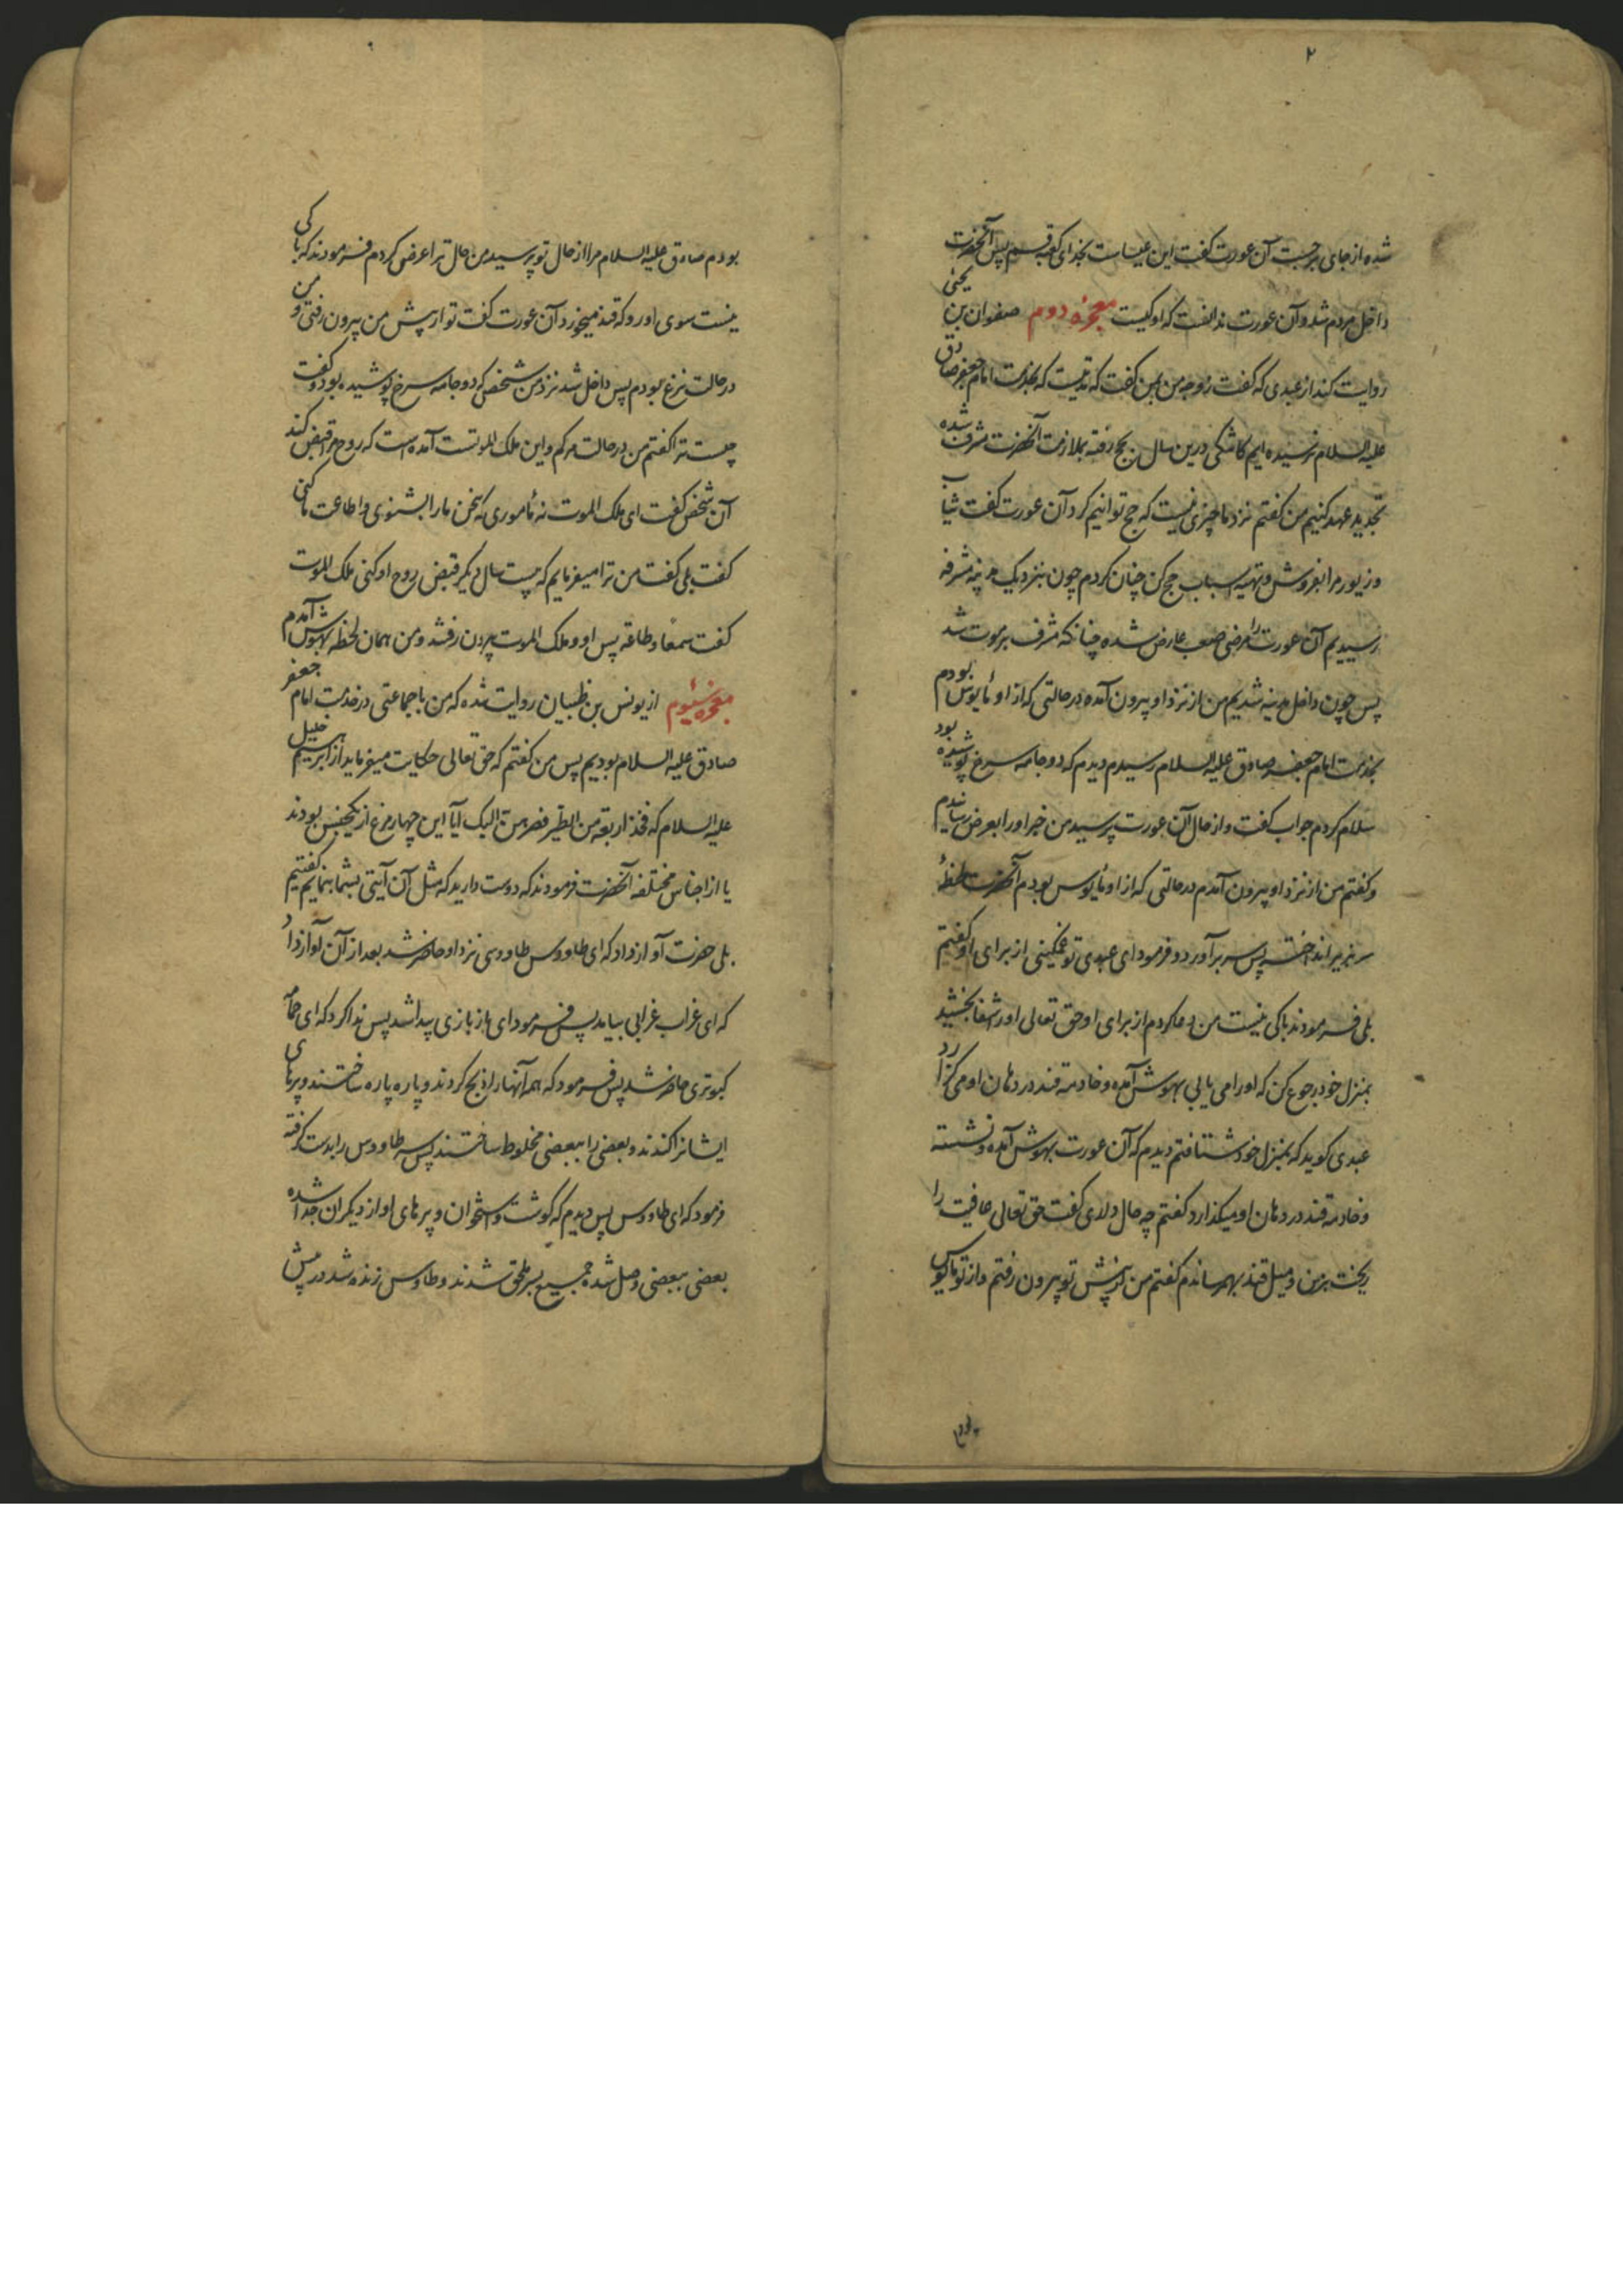 ۲
شده از جای برجست آن عورت گفت این عیسا ست بخدای کعبه قسم پس آنحضرت
داخل مردم شد و آن عورت ندانست که او کیست معجزه دوم صفوان بن یحیی
روایت کند از عبدی که گفت زوجه من بمن گفت که مدتیست که بخدمت امام جعفر صادق
علیه السلام نرسیده ایم کاشکی درین سال بحج رفته بملازمت آنحضرت مشرف شده
تجدید عهد کنیم من گفتم نزد ما چیزی نیست که حج توانیم کرد آن عورت گفت ثیاب
و زیور مرا بفروش و تهیه اسباب حج کن چنان کردم چون بنزدیک مدینه مشرفه
رسیدیم آن عورت را مرضی صعب عارض شده چنانکه مشرف بر موت شد
پس چون داخل مدینه شدیم من از نزد او بیرون آمده در حالتی که از او مأیوس بودم
بخدمت امام جعفر صادق علیه السلام رسیدم دیدم که دو جامه سرخ پوشیده بود
سلام کردم جواب گفت و از حال آن عورت پرسید من خبر او را بعرض رسانیدم
و گفتم من از نزد او بیرون آمدم در حالتی که از او مأیوس بودم آنحضرت لحظهٔ
سر بزیر انداخته پس سر برآورد و فرمود ای عبدی تو غمگینی از برای او گفتم
بلی فرمودند باکی نیست من دعا کردم از برای او حق تعالی او را شفا بخشید
بمنزل خود رجوع کن که او را می یابی بهوش آمده و خادمه قند در دهان او می گزارد
عبدی گوید که بمنزل خود شتافتم دیدم که آن عورت بهوش آمده و نشسته
و خادمه قند در دهان او میگذارد گفتم چه حال داری گفت حق تعالی عافیت را
ریخت بر من و میل قند بهم رساندم گفتم من از پیش تو بیرون رفتم و از تو مأیوس
بودم
بودم صادق علیه السلام مرا از حال تو پرسید من حال ترا عرض کردم فرمودند که باکی
نیست سوی او رو که قند میخورد آن عورت گفت تو از پیش من بیرون رفتی و من
در حالت نزع بودم پس داخل شد نزد من شخصی که دو جامه سرخ پوشیده بود و گفت
چیست ترا گفتم من در حالت مرگم و این ملک الموتست آمده است که روح مرا قبض کند
آن شخص گفت ای ملک الموت نه مأموری که سخن ما را بشنوی و اطاعت ما کنی
گفت بلی گفت من ترا میفرمایم که بیست سال دیگر قبض روح او کنی ملک الموت
گفت سمعا و طاعة پس او و ملک الموت بیرون رفتند و من همان لحظه بهوش آمدم
معجزه سیوم از یونس بن ظبیان روایت شده که من با جماعتی در خدمت امام جعفر
صادق علیه السلام بودیم پس من گفتم که حق تعالی حکایت میفرماید از ابرهیم خلیل
علیه السلام که فخذ اربعة من الطیر فصرهن الیک آیا این چهار مرغ از یکجنس بودند
یا از اجناس مختلفه آنحضرت فرمودند که دوست دارید که مثل آن آیتی بشما بنمایم گفتیم
بلی حضرت آواز داد که ای طاووس طاووسی نزد او حاضر شد بعد از آن آواز داد
که ای غراب غرابی بیامد پس فرمود ای باز بازی پیدا شد پس ندا کرد که ای حمامه
کبوتری حاضر شد پس فرمود که همه آنها را ذبح کردند و پاره پاره ساختند و پرهای
ایشانرا کندند و بعضی را ببعضی مخلوط ساختند پس سر طاووس را بدست گرفته
فرمود که ای طاووس پس دیدم که گوشت و استخوان و پرهای او از دیگران جدا شده
بعضی ببعضی وصل شده جمیع بسر ملحق شدند و طاوس زنده شد در پیش